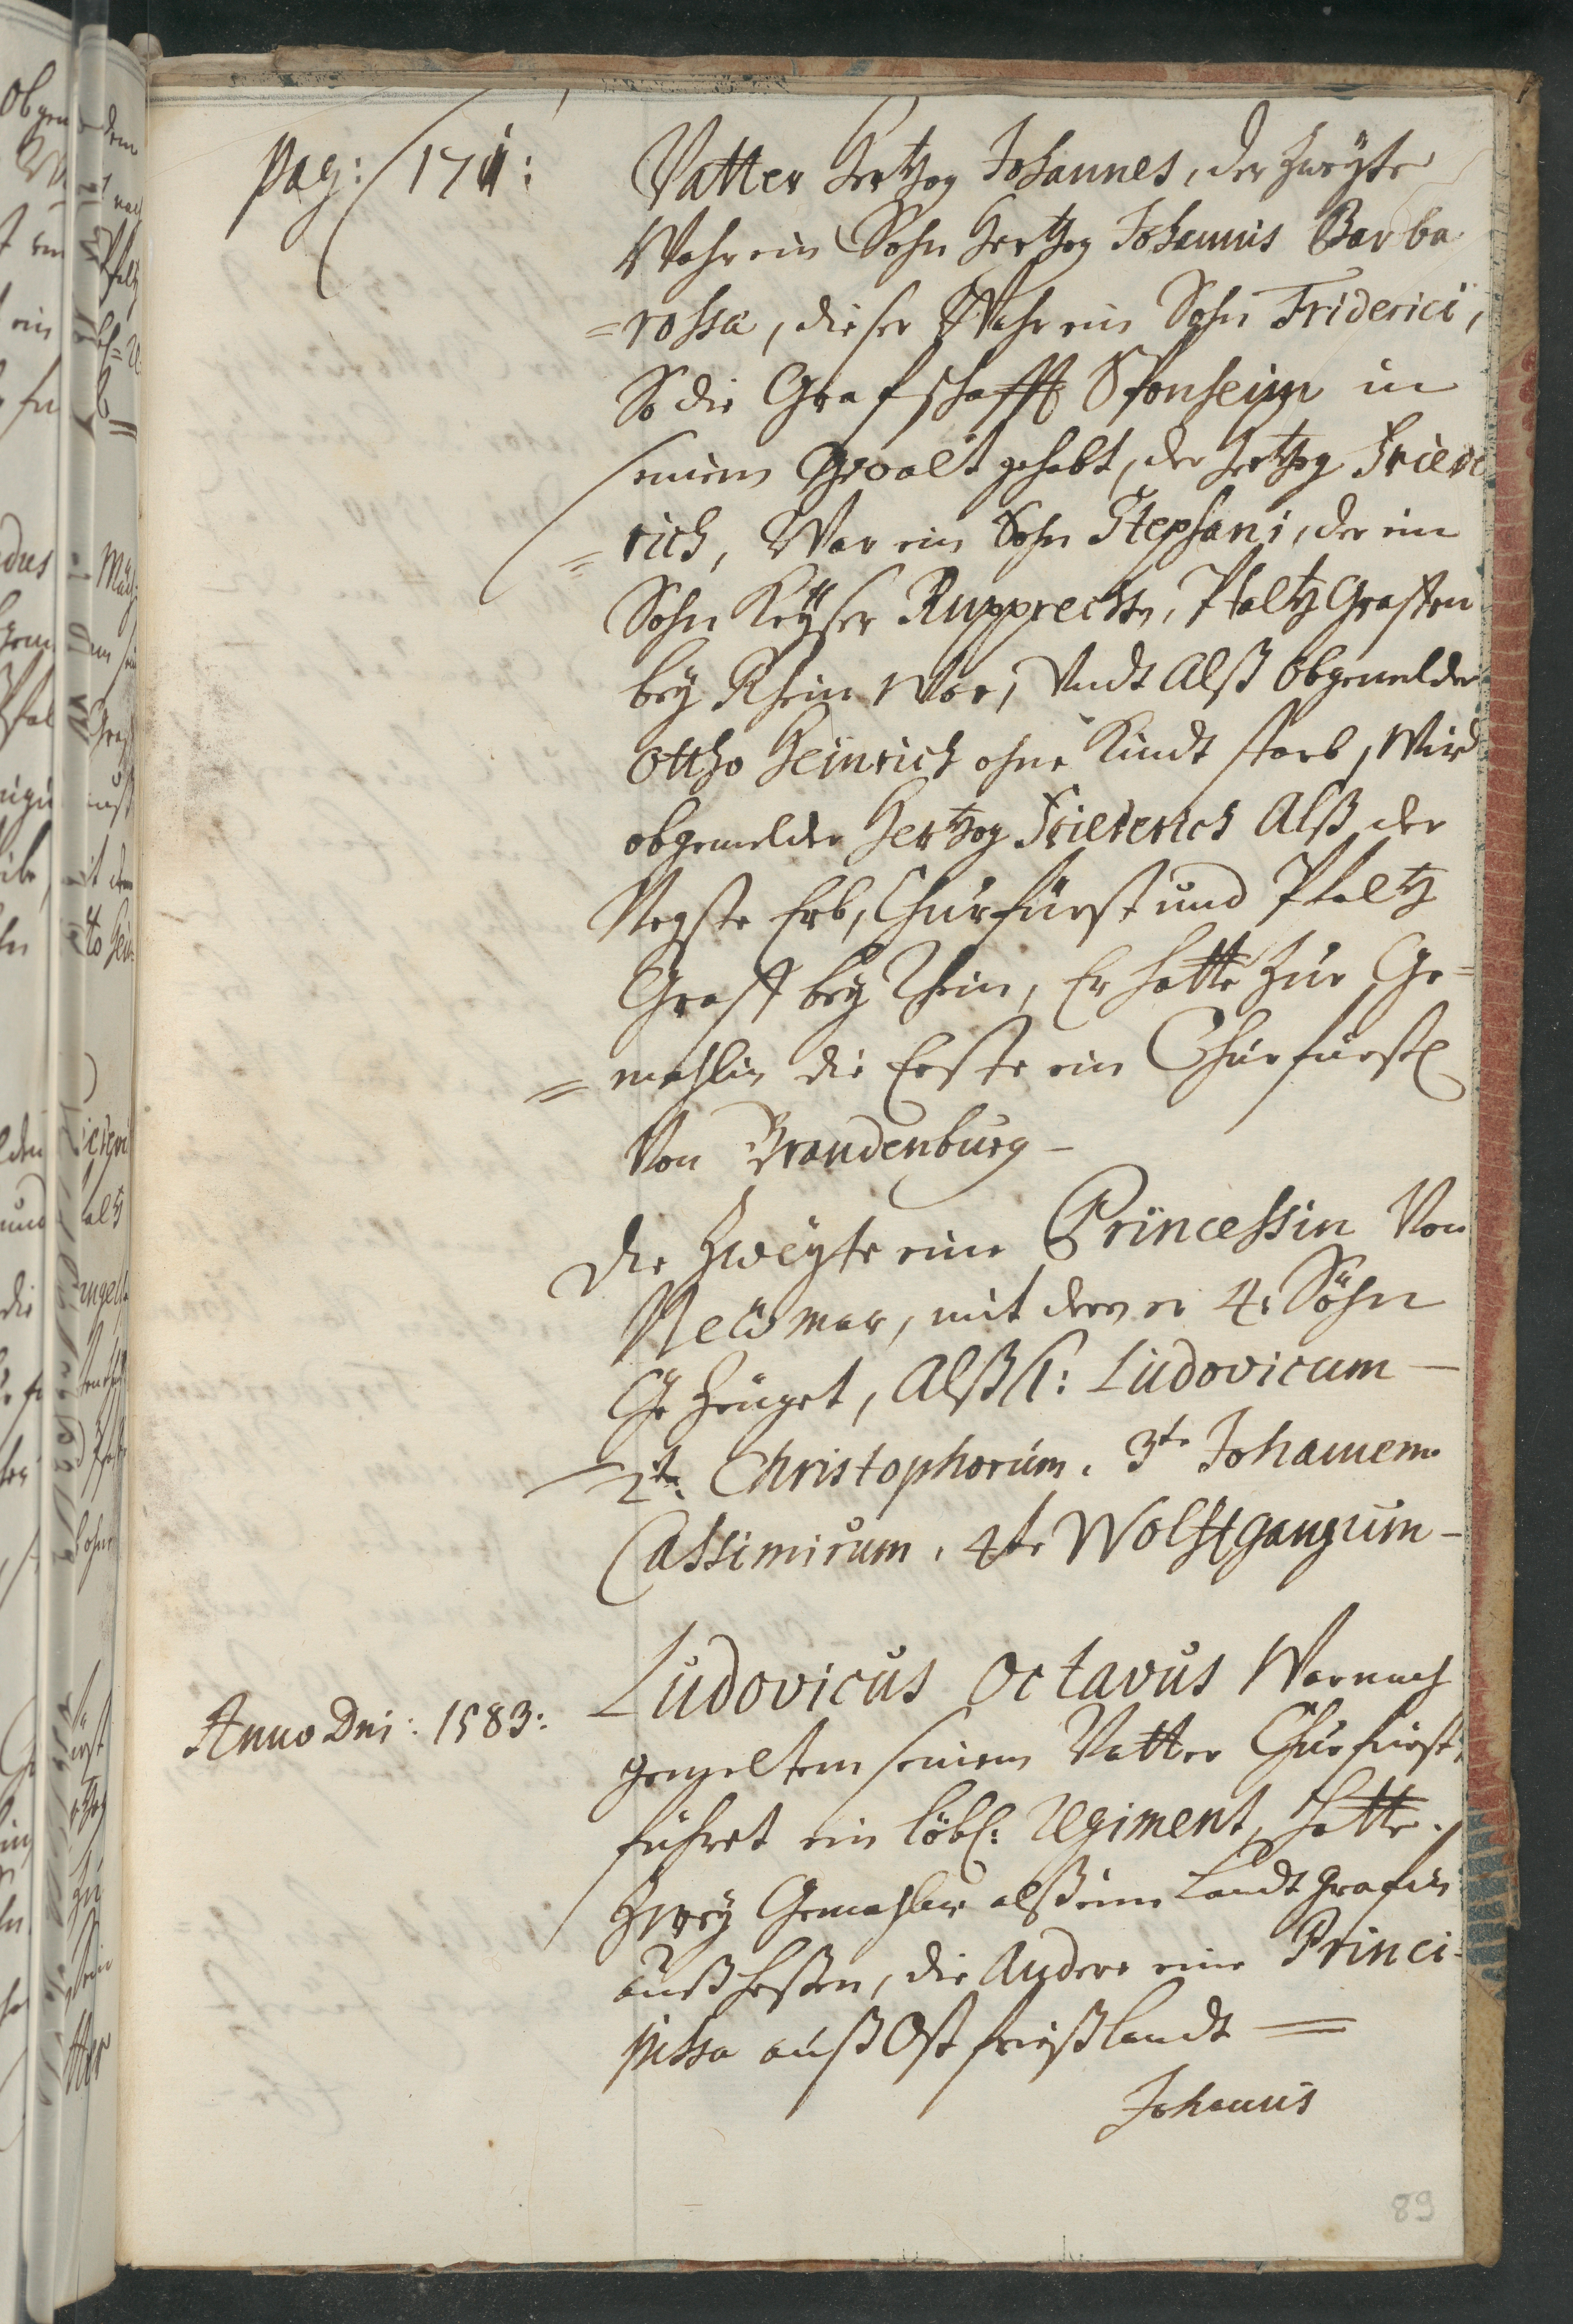 pag: 171:
Vatter Hertzog Johannes, der Zweÿte
Wahr ein Sohn Hertzog Johannis Barba
=rossa, dieser Wahr ein Sohn Friderici,
So die Grafschafft Sponheim in
seinem Gewalt gehabt, der Hertzog Friede
=rich, War ein Sohn Stephani, der ein
Sohn Keÿser Rupprechts, Pfaltz Graffen
beÿ Rhein War, Undt Alß obgemelder
Ottho Heinrich ohne Kindt starb, Wird
obgemelder Hertzog Friederich Alß der
Negste Erb, Churfürst und Pfaltz
Graff beÿ Rhein, Er hatte Zur Ge=
=mahlin die Erste ein Churfürstl
Von Brandenburg –
die Zweÿte eine Princessin Von
mar, mit deren er 4: Söhn
Gezeuget, Alß 1: Ludovicum –
2te Christophorum. 3te Johannem
Cassimirum, 4te Wolffgangum –
Anno Dni: 1583:
Ludovicus Octavus War nach
gemeltem seinem Vatter Churfürst,
führet ein löbl: Regiment, Hatte
Zweÿ Gemahlin alß eine Landtgrafin
auß Heßen, die Andere eine Princi-
pissa auß Ostfrießlandt =
Johannis
89